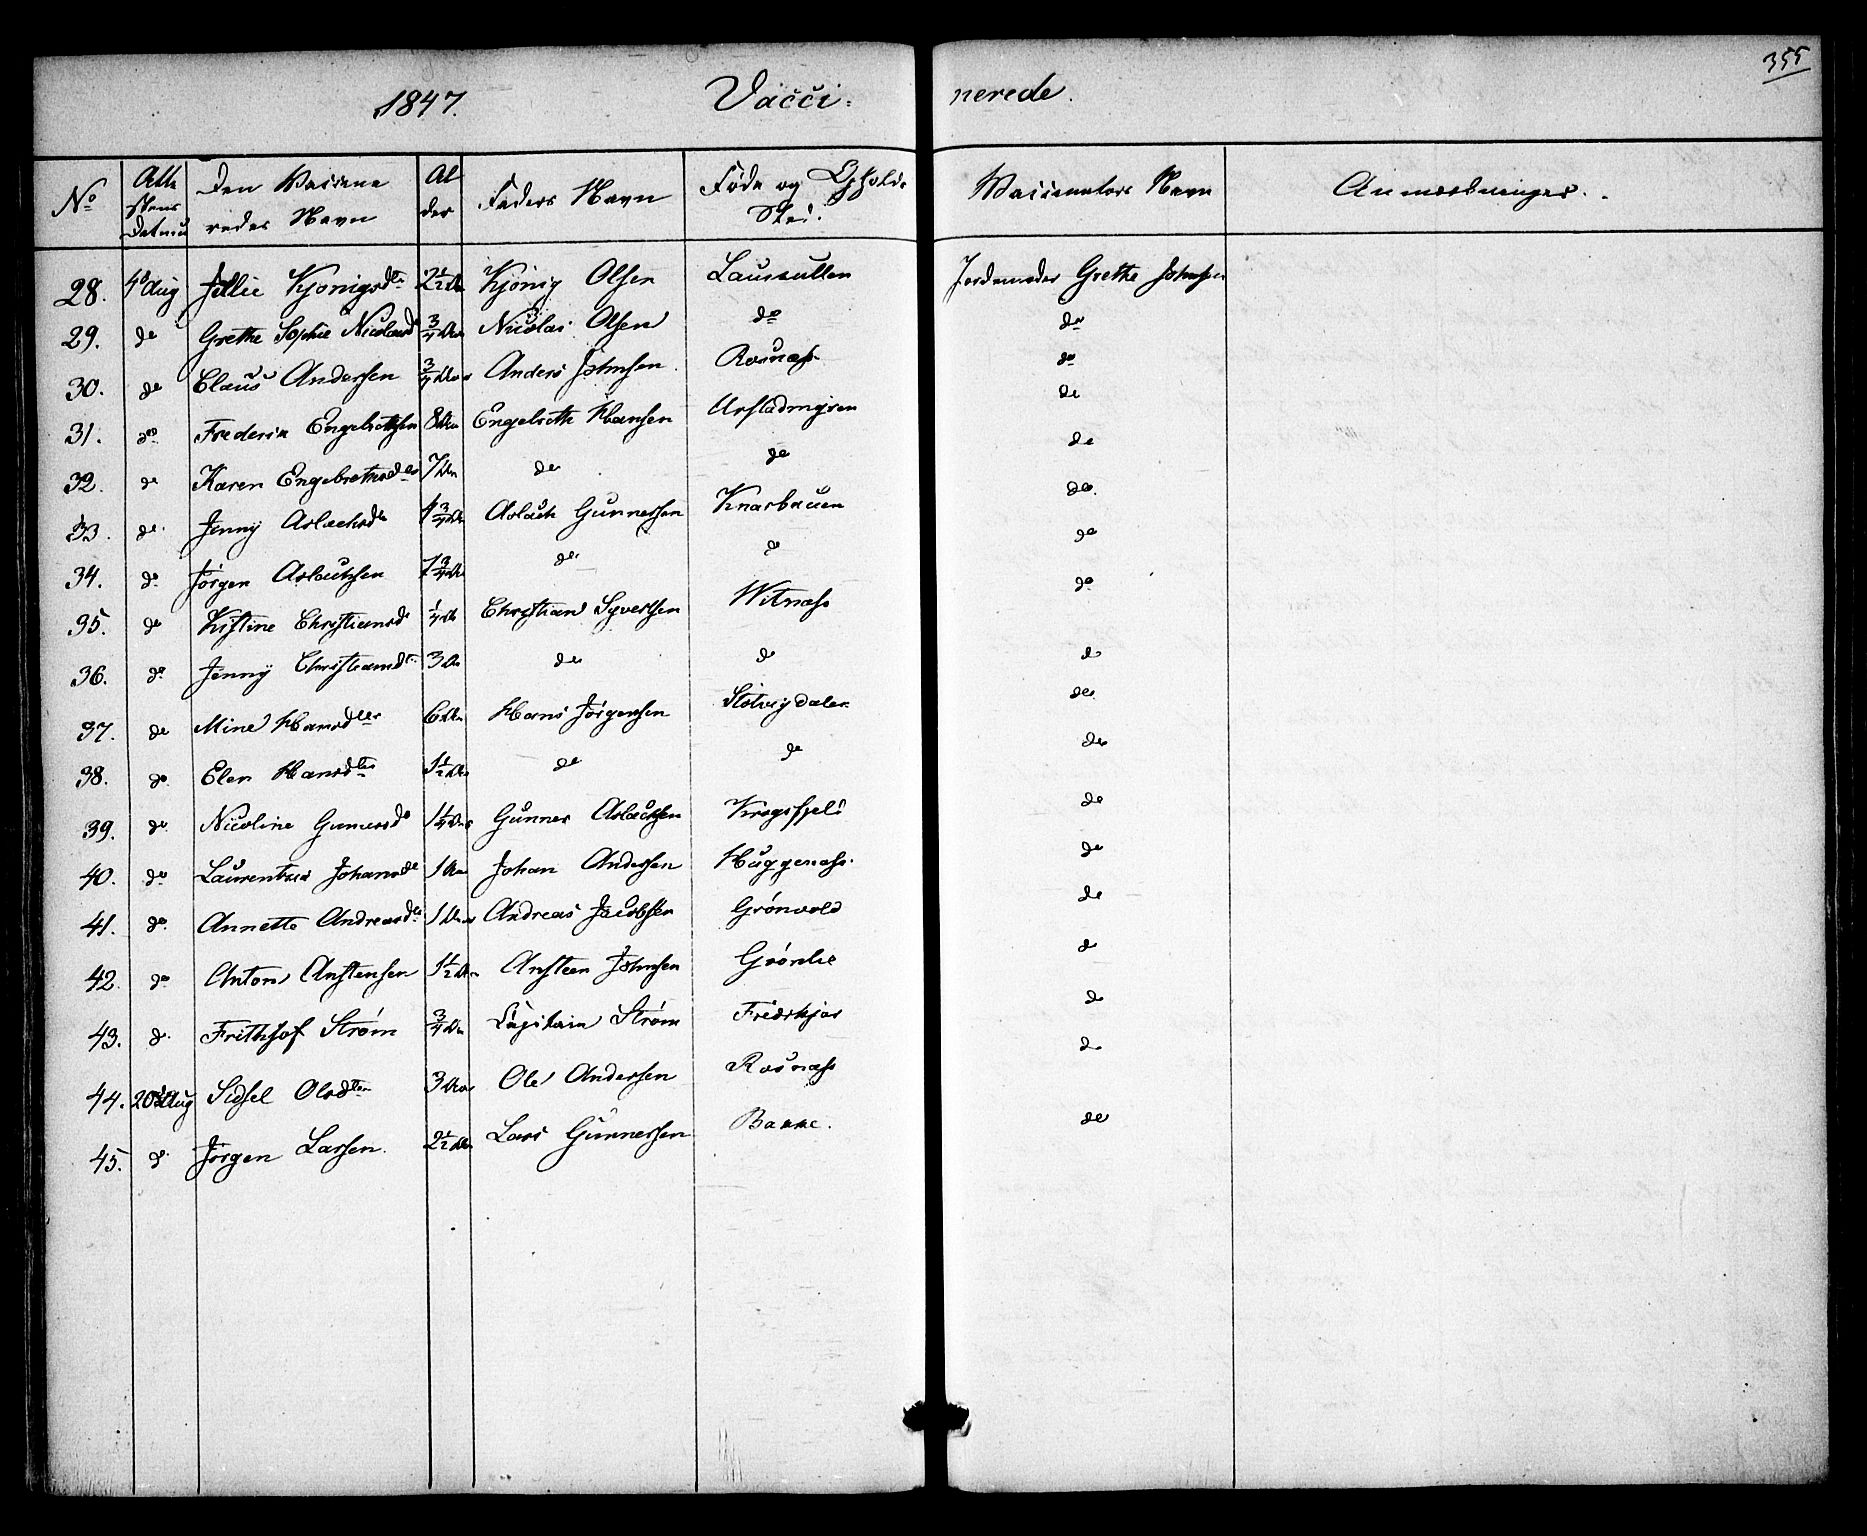 355
1847. Vacci: nerede.
No Atte stens Datum Den Vaccine redes Navn Al der Faders Navn Føde og Opholds Sted. Vaccinators Navn Anmærkninger.
28. 4 Aug Jellie Kjonigsdtr 2 1/2 Kjönig Olsen Jordemoder Grethe Johnsen
29. do Grethe Sophie Nicolaisd 3/4 Nicolai Olsen do do
30. do Claus Andersen 3/4 Anders Johnsen Rosnæss do
31. do Frederik Engebrethsen 8 Engebreth Hansen Arstadmyren do
32. do Karen Engebrethsdr 7 do do do
33. do Jenny Aslachsdr 4 3/4 Aslach Gunnersen Knarbauen do
34. do Jörgen Aslachsen 7 3/4 do do do
35. do Kistine Christiansd 1/4 Christian Syversen Witnæss do
36. do Jenny Christiansdr 3 do do do
37. do Mine Hansdter 6 Hans Jörgensen do
38. do Elen Hansdter 1 1/2 do do do
39. do Nicoline Gunersdr 1 1/4 Gunner Aslachsen Krogsfjeld do
40. do Laurentze Johansdr 1 Johan Andersen Huggenæss do
41. do Annette Andreasdr 1 Andreas Jacobsen Grönvold do
42. do Anton Anstensen 1 1/2 Ansteen Johnsen Grönlie do
43. do Frithjof Ström 3/4 Capitain Ström do
44. 20 Aug Sidsel Olsdter 3 Ole Andersen Rosnæss do
45. do Jörgen Larsen. 2 1/2 Lars Gunnersen Bakke. do